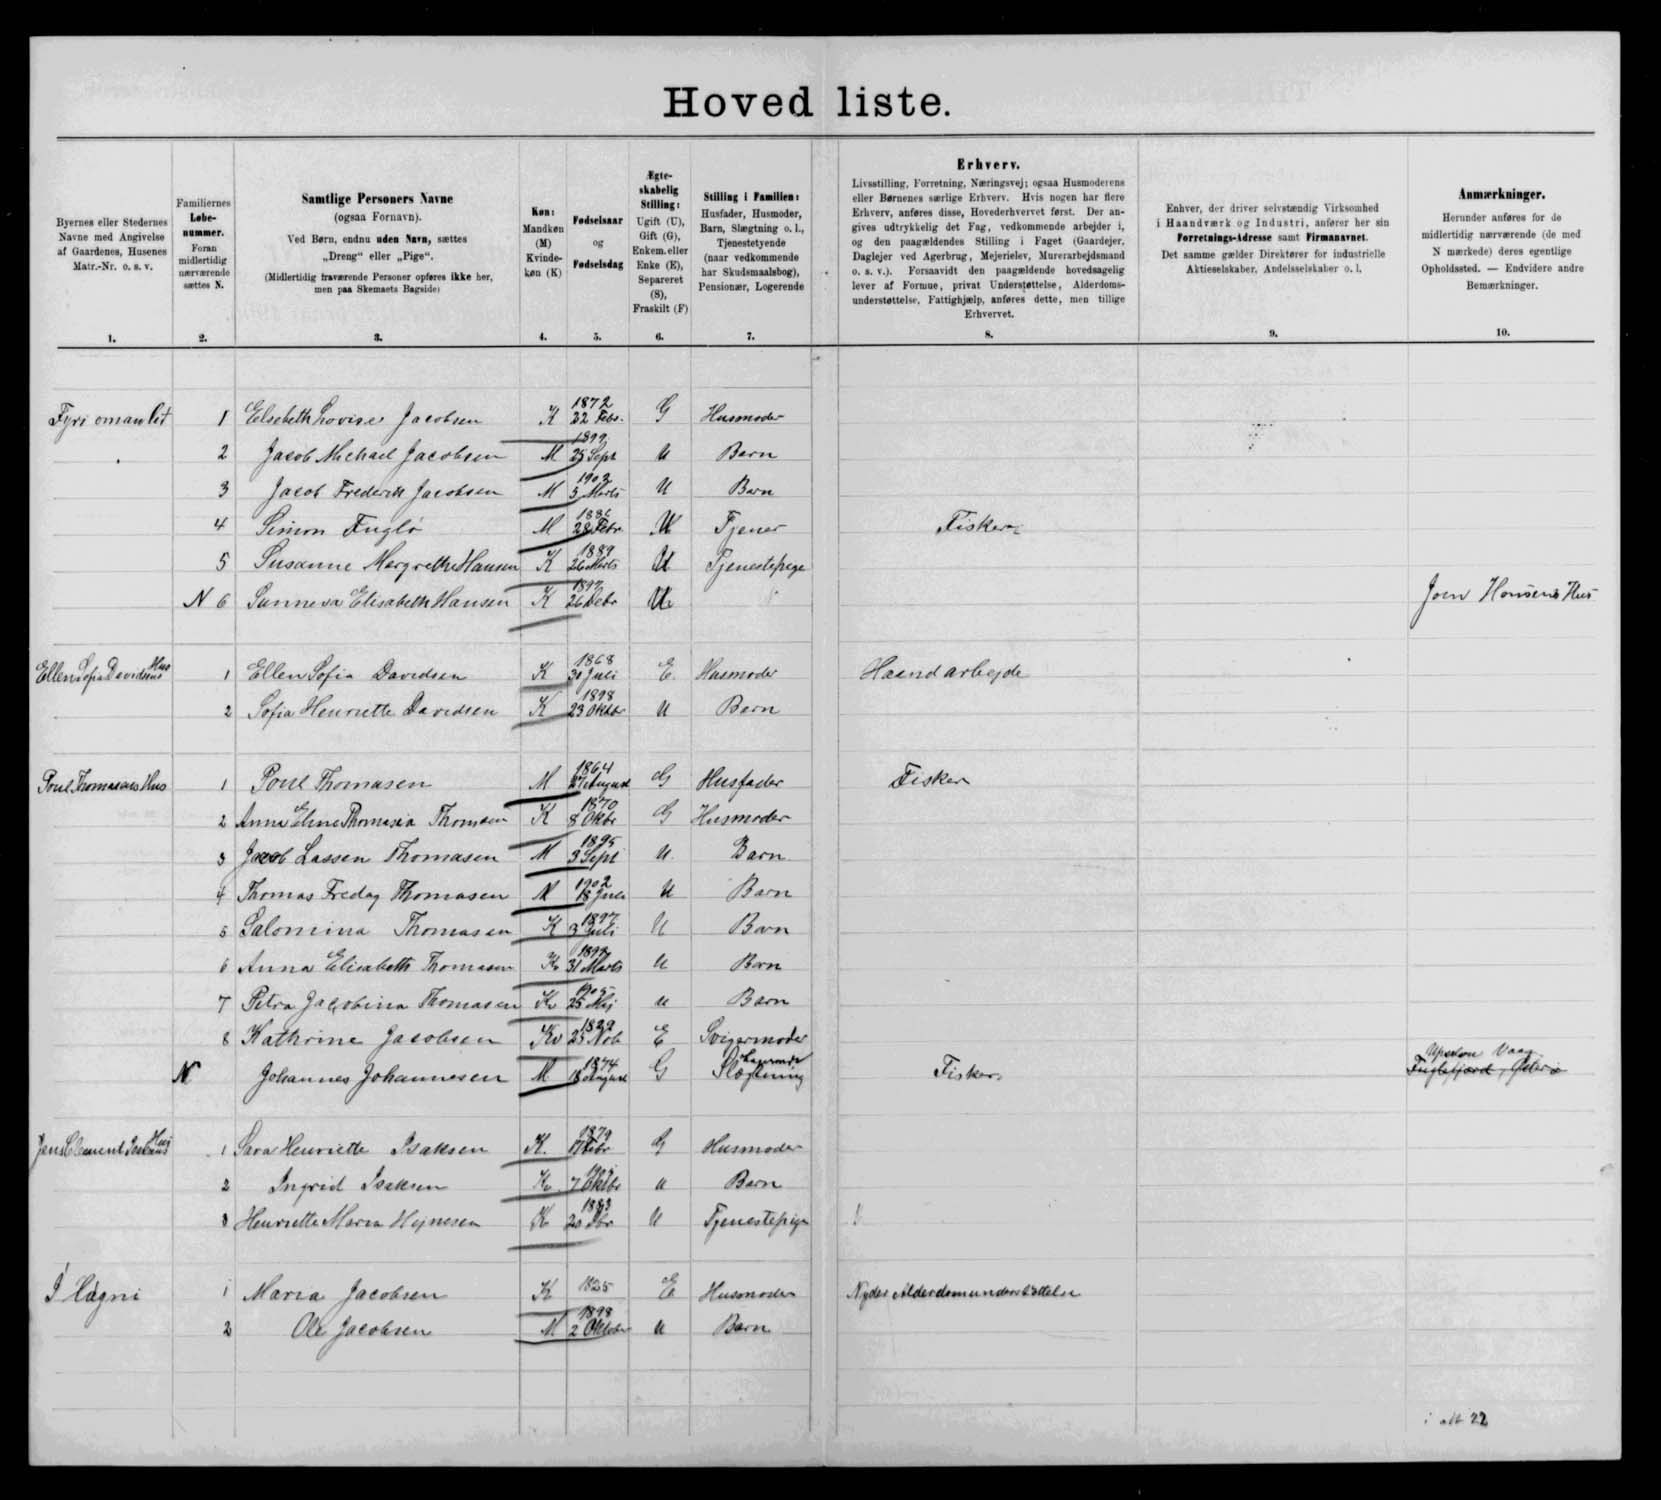 Hoved liste.
Byernes eller Stedernes
Navne med Angivelse
af Gaardenes, Husenes
Matr.-Nr. o. s. v.
1.
Familiernes
Løbe-
nummer.
Foran
midlertidig
nærværende
sættes N.
2.
Samtlige Personers Navne
(ogsaa Fornavn).
Ved Børn, endnu uden Navn, sættes
„Dreng“ eller „Pige“.
(Midlertidig fraværende Personer opføres ikke her,
men paa Skemaets Bagside)
3.
Køn:
Mandkøn
(M)
Kvinde-
køn (K)
4.
Fødselsaar
og
Fødselsdag
5.
Ægte-
skabelig
Stilling:
Ugift (U),
Gift (G),
Enkem. eller
Enke (E),
Separeret
(S),
Fraskilt (F)
6.
Stilling i Familien:
Husfader, Husmoder,
Barn, Slægtning o. l.,
Tjenestetyende
(naar vedkommende
har Skudsmaalsbog),
Pensionær, Logerende
7.
Erhverv.
Livsstilling, Forretning, Næringsvej; ogsaa Husmoderens
eller Børnenes særlige Erhverv. Hvis nogen har flere
Erhverv, anføres disse, Hovederhvervet først. Der an-
gives udtrykkelig det Fag, vedkommende arbejder i,
og den paagældendes Stilling i Faget (Gaardejer,
Daglejer ved Agerbrug, Mejerielev, Murerarbejdsmand
o. s. v.). Forsaavidt den paagældende hovedsagelig
lever af Formue, privat Understøttelse, Alderdoms-
understøttelse, Fattighjælp, anføres dette, men tillige
Erhvervet.
8.
Enhver, der driver selvstændig Virksomhed
i Haandværk og Industri, anfører her sin
Forretnings-Adresse samt Firmanavnet.
Det samme gælder Direktører for industrielle
Aktieselskaber, Andelsselskaber o. l.
9.
Anmærkninger.
Herunder anføres for de
midlertidig nærværende (de med
N mærkede) deres egentlige
Opholdssted. — Endvidere andre
Bemærkninger.
10.
Fyri oman lit 1 Elsebeth Lovise Jacobsen K 1872 22 Febr. G Husmoder
2 Jacob Michael Jacobsen M 1899 25 Sept U Barn
3 Jacob Frederik Jacobsen M 1902 5 Marts U Barn
4 Simon Fuglø M 1886 28 Febr U Tjener Fisker
5 Susanne Margrethe Hansen K 1889 26 Marts U Tjenestepige
N 6 Sunneva Elisabeth Hansen K 26 U Joen Hansens Hus
Ellen Sofia Davidsens Hus 1 Ellen Sofia Davidsen K 1868 30 Juli E Husmoder Haandarbejde
2 Sofia Henriette Davidsen K 1898 23 Oktbr U Barn
Poul Thomasens Hus 1 Poul Thomasen M 1864 August G Husfader Fisker
2 Anna Eline Thomasia Thomsen K 1870 8 Okbr G Husmoder
3 Jacob Lassen Thomasen M 1895 3 Sept U. Barn
4 Thomas Fredag Thomasen M 1902 18 Juli U Barn
5 Salomina Thomasen K 1897 3 Juli U Barn
6 Anna Elisabeth Thomasen K 31 Marts U Barn
7 Petra Jacobina Thomasen K 1905 25 Maj U Barn
8 Kathrine Jacobsen K 25 Nob E Svigermoder
N Johannes Johannesen M 1874 18 August G Slægtning Logerende Fisker Fuglefjord, Østerø Vaag
Jens Clement Isaksens Hus 1 Sara Henriette Isaksen K. 1879 Febr G Husmoder
2 Ingrid Isaksen K 7 Oktbr U Barn
3 Henriette Maria Hejnesen K 1883 20 U Tjenestepige
Í Hágni 1 Maria Jacobsen K 1825 E Husmoder Nyder Alderdomsunderstøttelse
2 Ole Jacobsen M 1898 2 Oktober U Barn
i alt 22